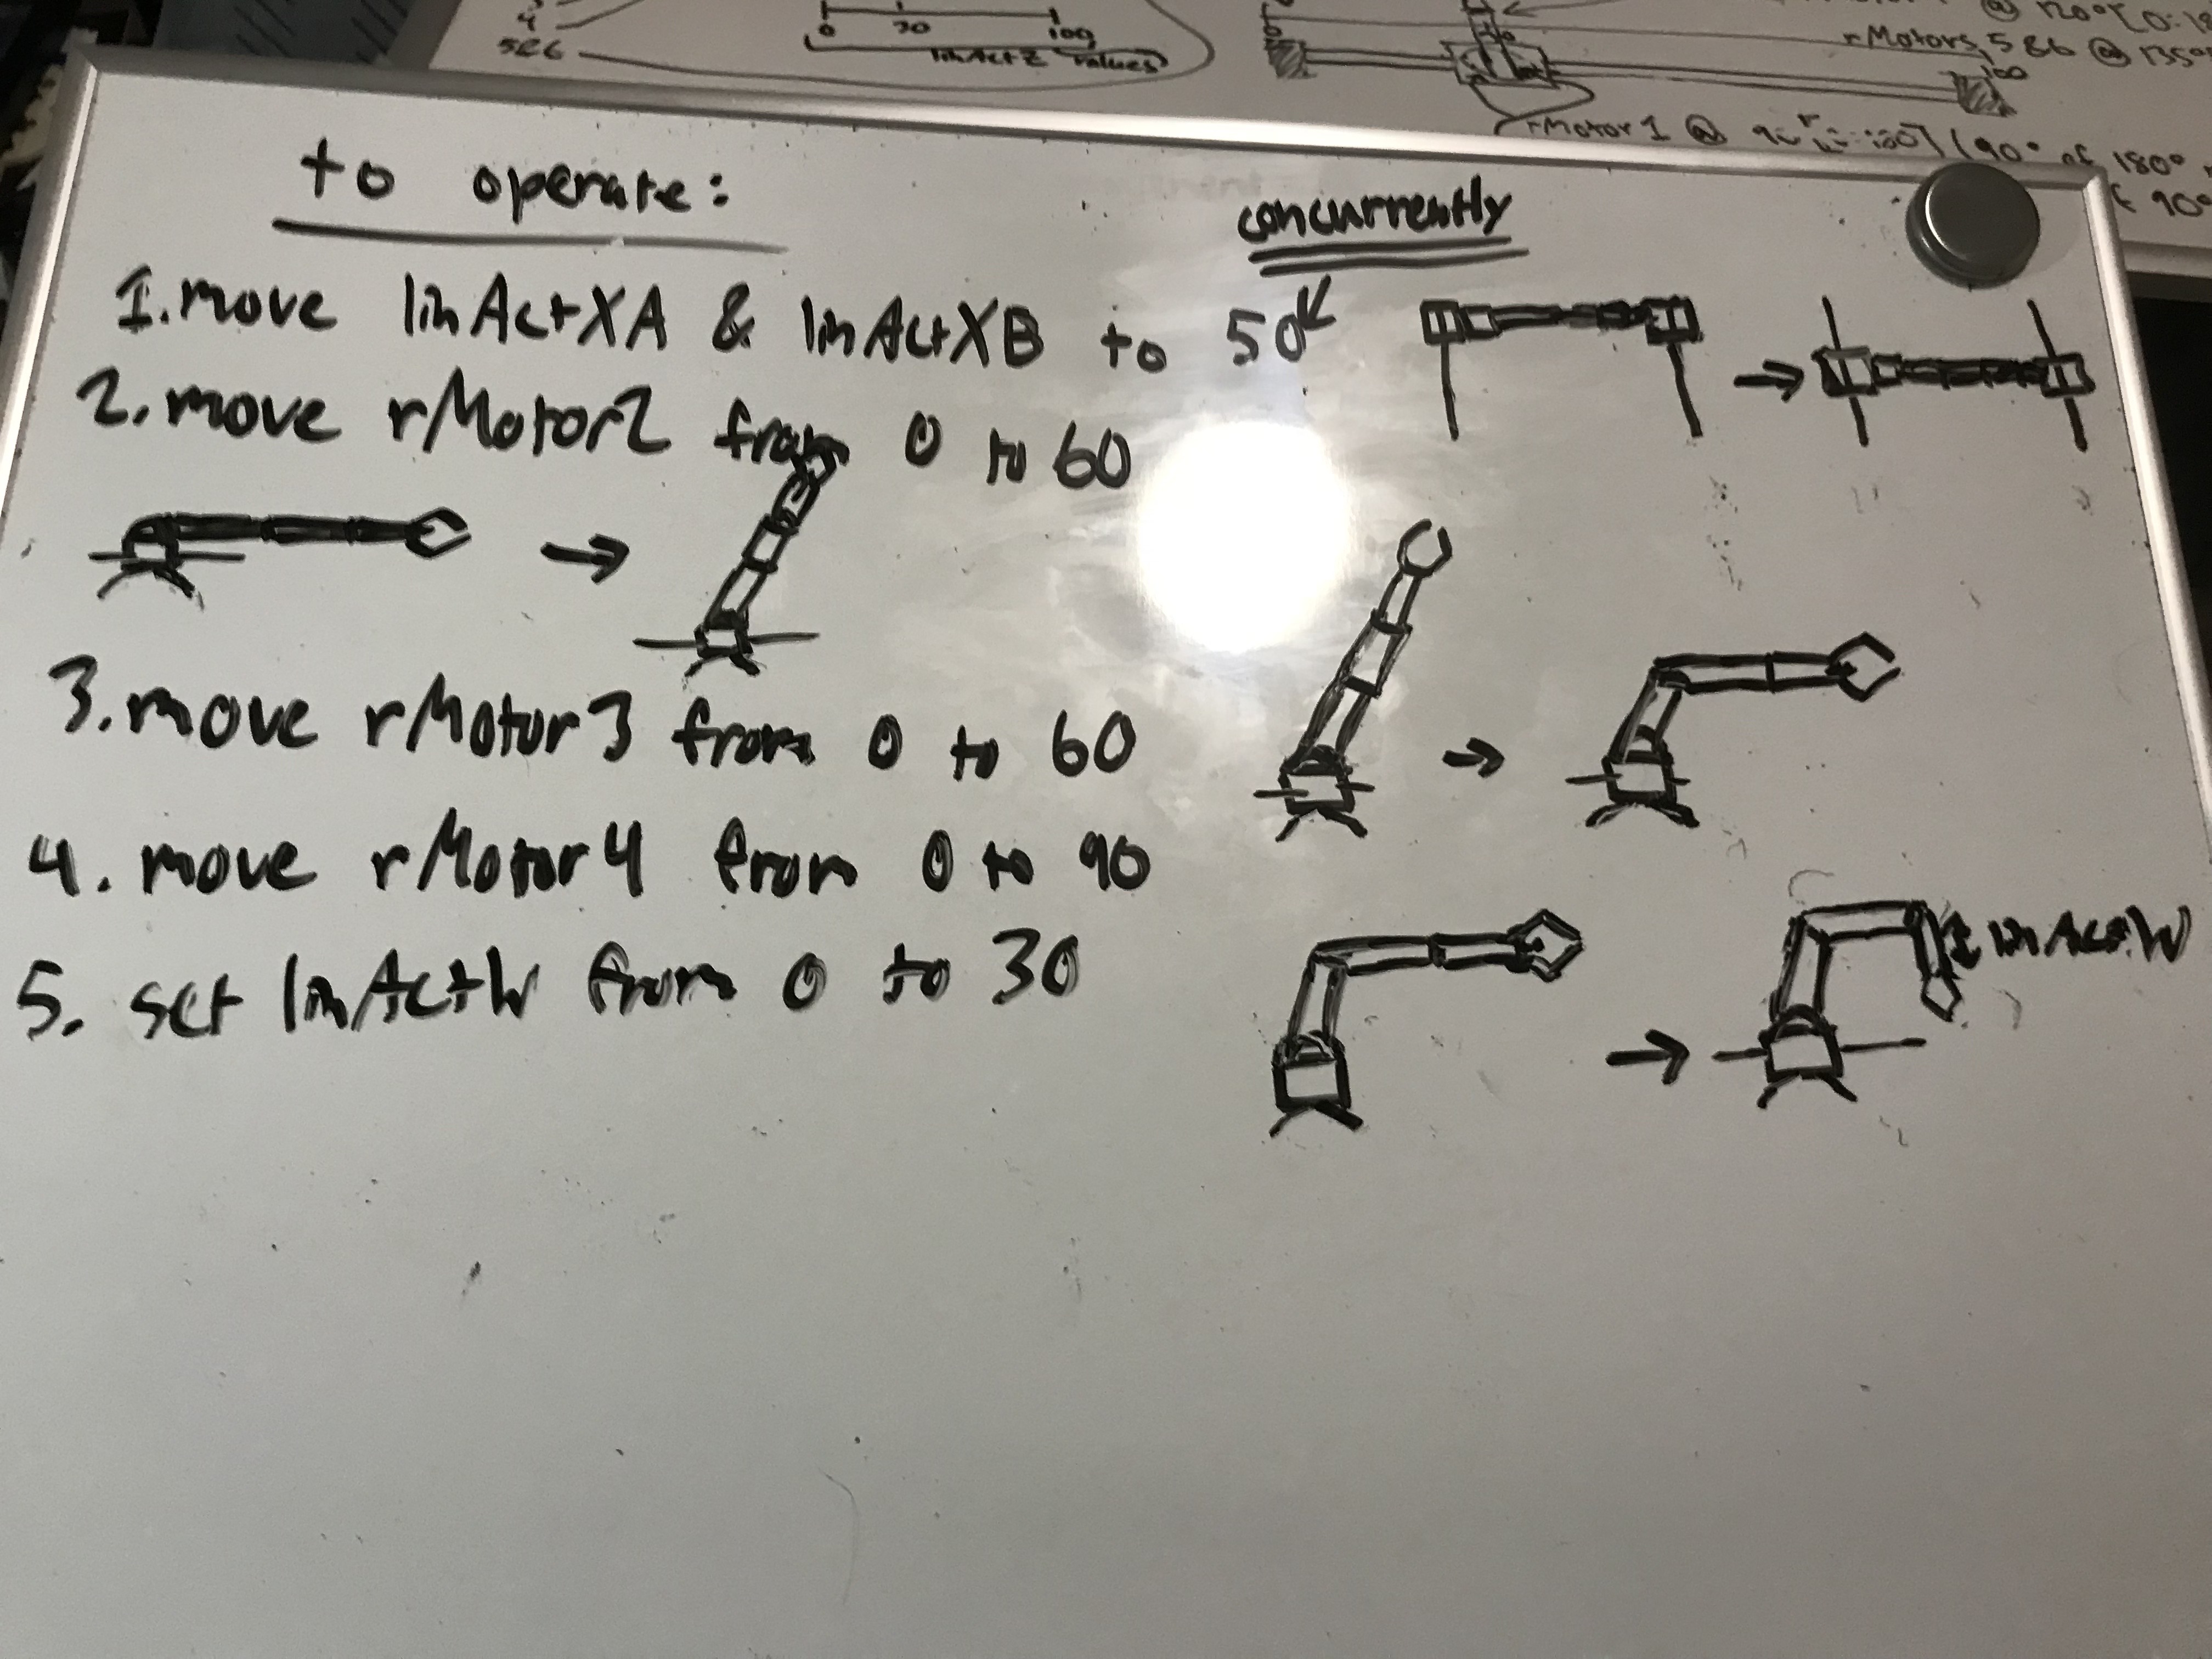 4
5&6
0 30 100
linActZ values
rMotors, 5&6 @ 135°
100
rMotor1 @
(90° of 180°
90°
to operate:
concurrently
1. move linActXA & linActXB to 50
2. move rMotor2 from 0 to 60
3. move rMotor3 from 0 to 60
4. move rMotor4 from 0 to 90
linActW
5. set linActW from 0 to 30